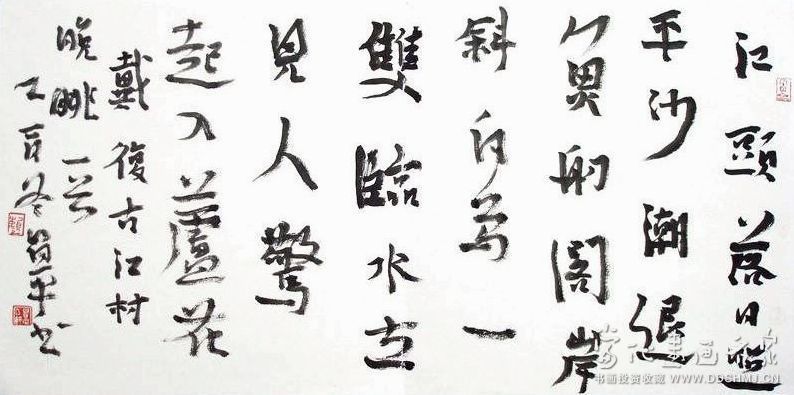 江頭落日照
平沙潮退
漁舠閣岸
斜白鳥一
雙臨水立
見人驚
起入蘆花
戴復古江村
晚眺一首
乙酉冬平書
书画投资收藏 WWW.DDSHMJ.CN